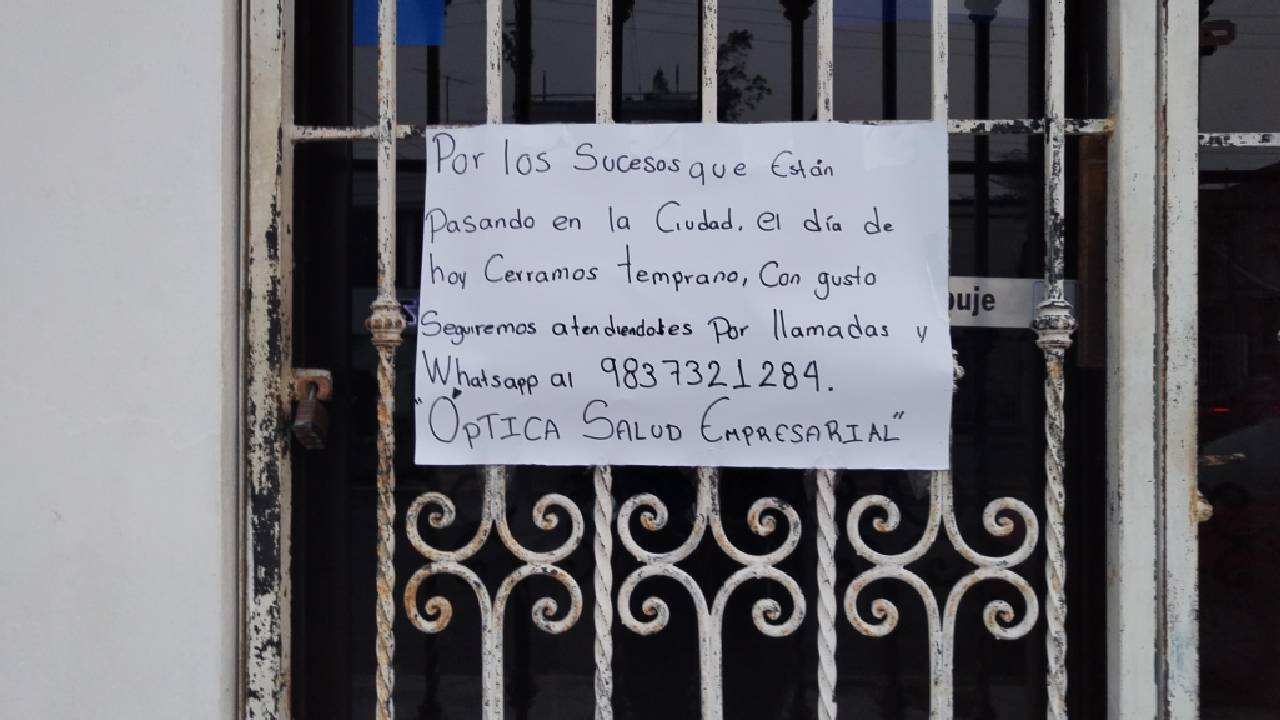 Por los Sucesos que Están
Pasando en la Ciudad. el día de
hoy Cerramos temprano, Con gusto
Seguiremos atendiendoles Por llamadas y
Whatsapp al 9837321284.
"ÓPTICA SALUD EMPRESARIAL"
uje